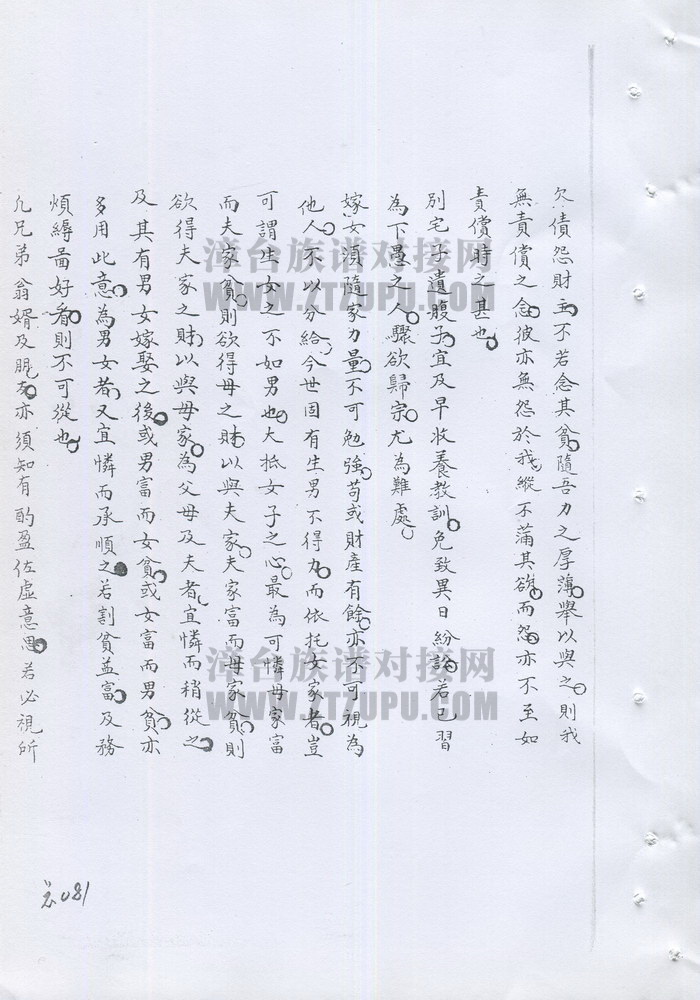 欠債怨財主不若念其貧。隨吾力之厚薄。舉以與之。則我
無責償之念。彼亦無怨於我。縱不滿其欲。而怨。亦不至如
責償時之甚也。
別宅子遺腹子。宜及早收養教訓。免致異日紛說。若已習
為下愚之人。驟欲歸宗。尤為難處。
嫁女須隨家力量。不可勉強。苟或財產有餘。亦不可視為
他人。不以分給。今世固有生男不得力。而依托女家者。豈
可謂生女之不如男也。大抵女子之心。最為可憐。母家富
而夫家貧。則欲得母之財。以與夫家。夫家富而母家貧。則
欲得夫家之財。以與母家。為父母及夫者。宜憐而稍從之。
及其有男女嫁娶之後。或男富而女貧。或女富而男貧。亦
多用此意。為男女者。又宜憐而承順之。若割貧益富。及務
煩縟啚好看。則不可從也。
凡兄弟翁婿及朋友。亦須知有酌盈佐虛意思。若必視所
总081
漳台族谱对接网
WWW.ZTZUPU.COM
漳台族谱对接网
WWW.ZTZUPU.COM